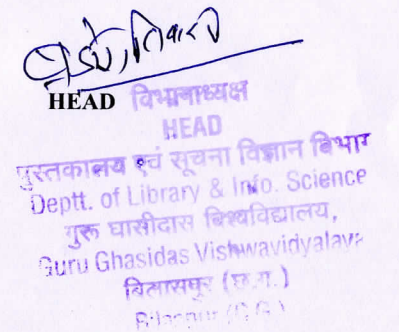 HEAD विभागाध्यक्ष
HEAD
पुस्तकालय एवं सूचना विज्ञान विभाग
Deptt. of Library & Info. Science
गुरू घासीदास विश्वविद्यालय,
Guru Ghasidas Vishwavidyalaya
बिलासपुर (छ.ग.)
Bilaspur (C.G.)